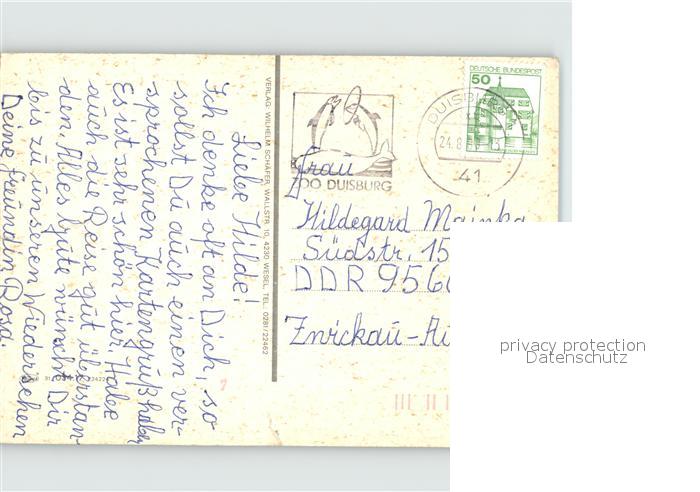 Liebe Hilde!
Ich denke oft an Dich, so
sollst Du auch einen ver-
sprochenen Kartengruß haben
Es ist sehr schön hier. Habe
auch die Reise gut überstan-
den. Alles Gute wünscht Dir
bis zu unseren Wiedersehen
Deine Freundin Rosa.
VERLAG: WILHELM SCHÄFER, WALLSTR. 10, 4230 WESEL, TEL. 0281/22462
DEUTSCHE BUNDESPOST
50
DUISBURG
24.8.
41
ZOO DUISBURG
Frau
Hildegard Mainka
Südstr. 15
DDR 956
Zwickau-Au
privacy protection
Datenschutz